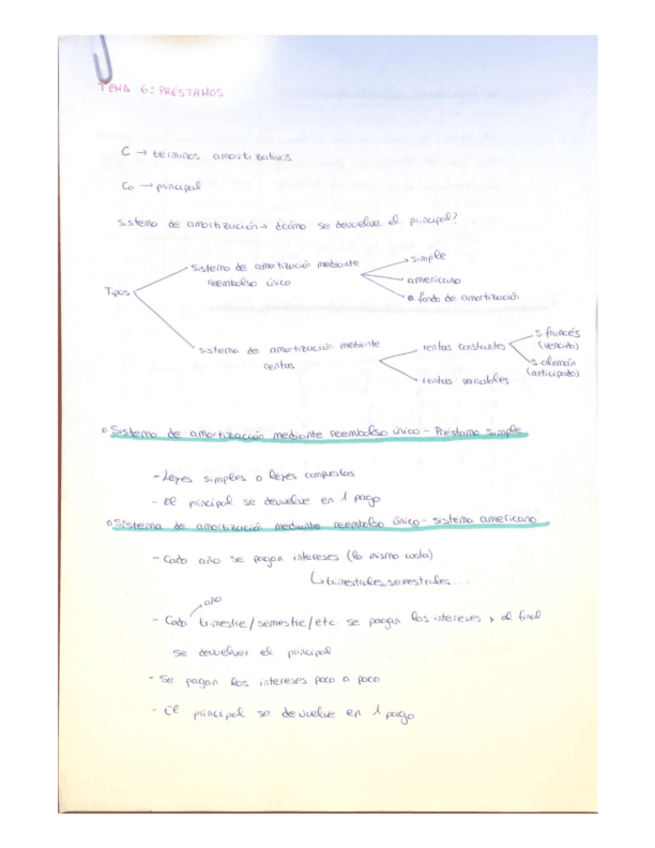 TEMA 6: PRÉSTAMOS
C → términos amortizativos
Co → principal
sistema de amortización → ¿cómo se devuelve el principal?
Tipos
sistema de amortización mediante
reembolso único
simple
americano
a fondo de amortización
sistema de amortización mediante
rentas
rentas constantes
s. francés
(vencido)
s. alemán
(anticipado)
rentas variables
Sistema de amortización mediante reembolso único - Préstamo simple
- Leyes simples o leyes compuestas
- El principal se devuelve en 1 pago
Sistema de amortización mediante reembolso único - sistema americano
- Cada año se pagan intereses (la misma cuota)
↳ trimestrales, semestrales...
año
- Cada trimestre/semestre/etc. se pagan los intereses y al final
se devuelver el principal
- Se pagan los intereses poco a poco
- El principal se devuelve en 1 pago